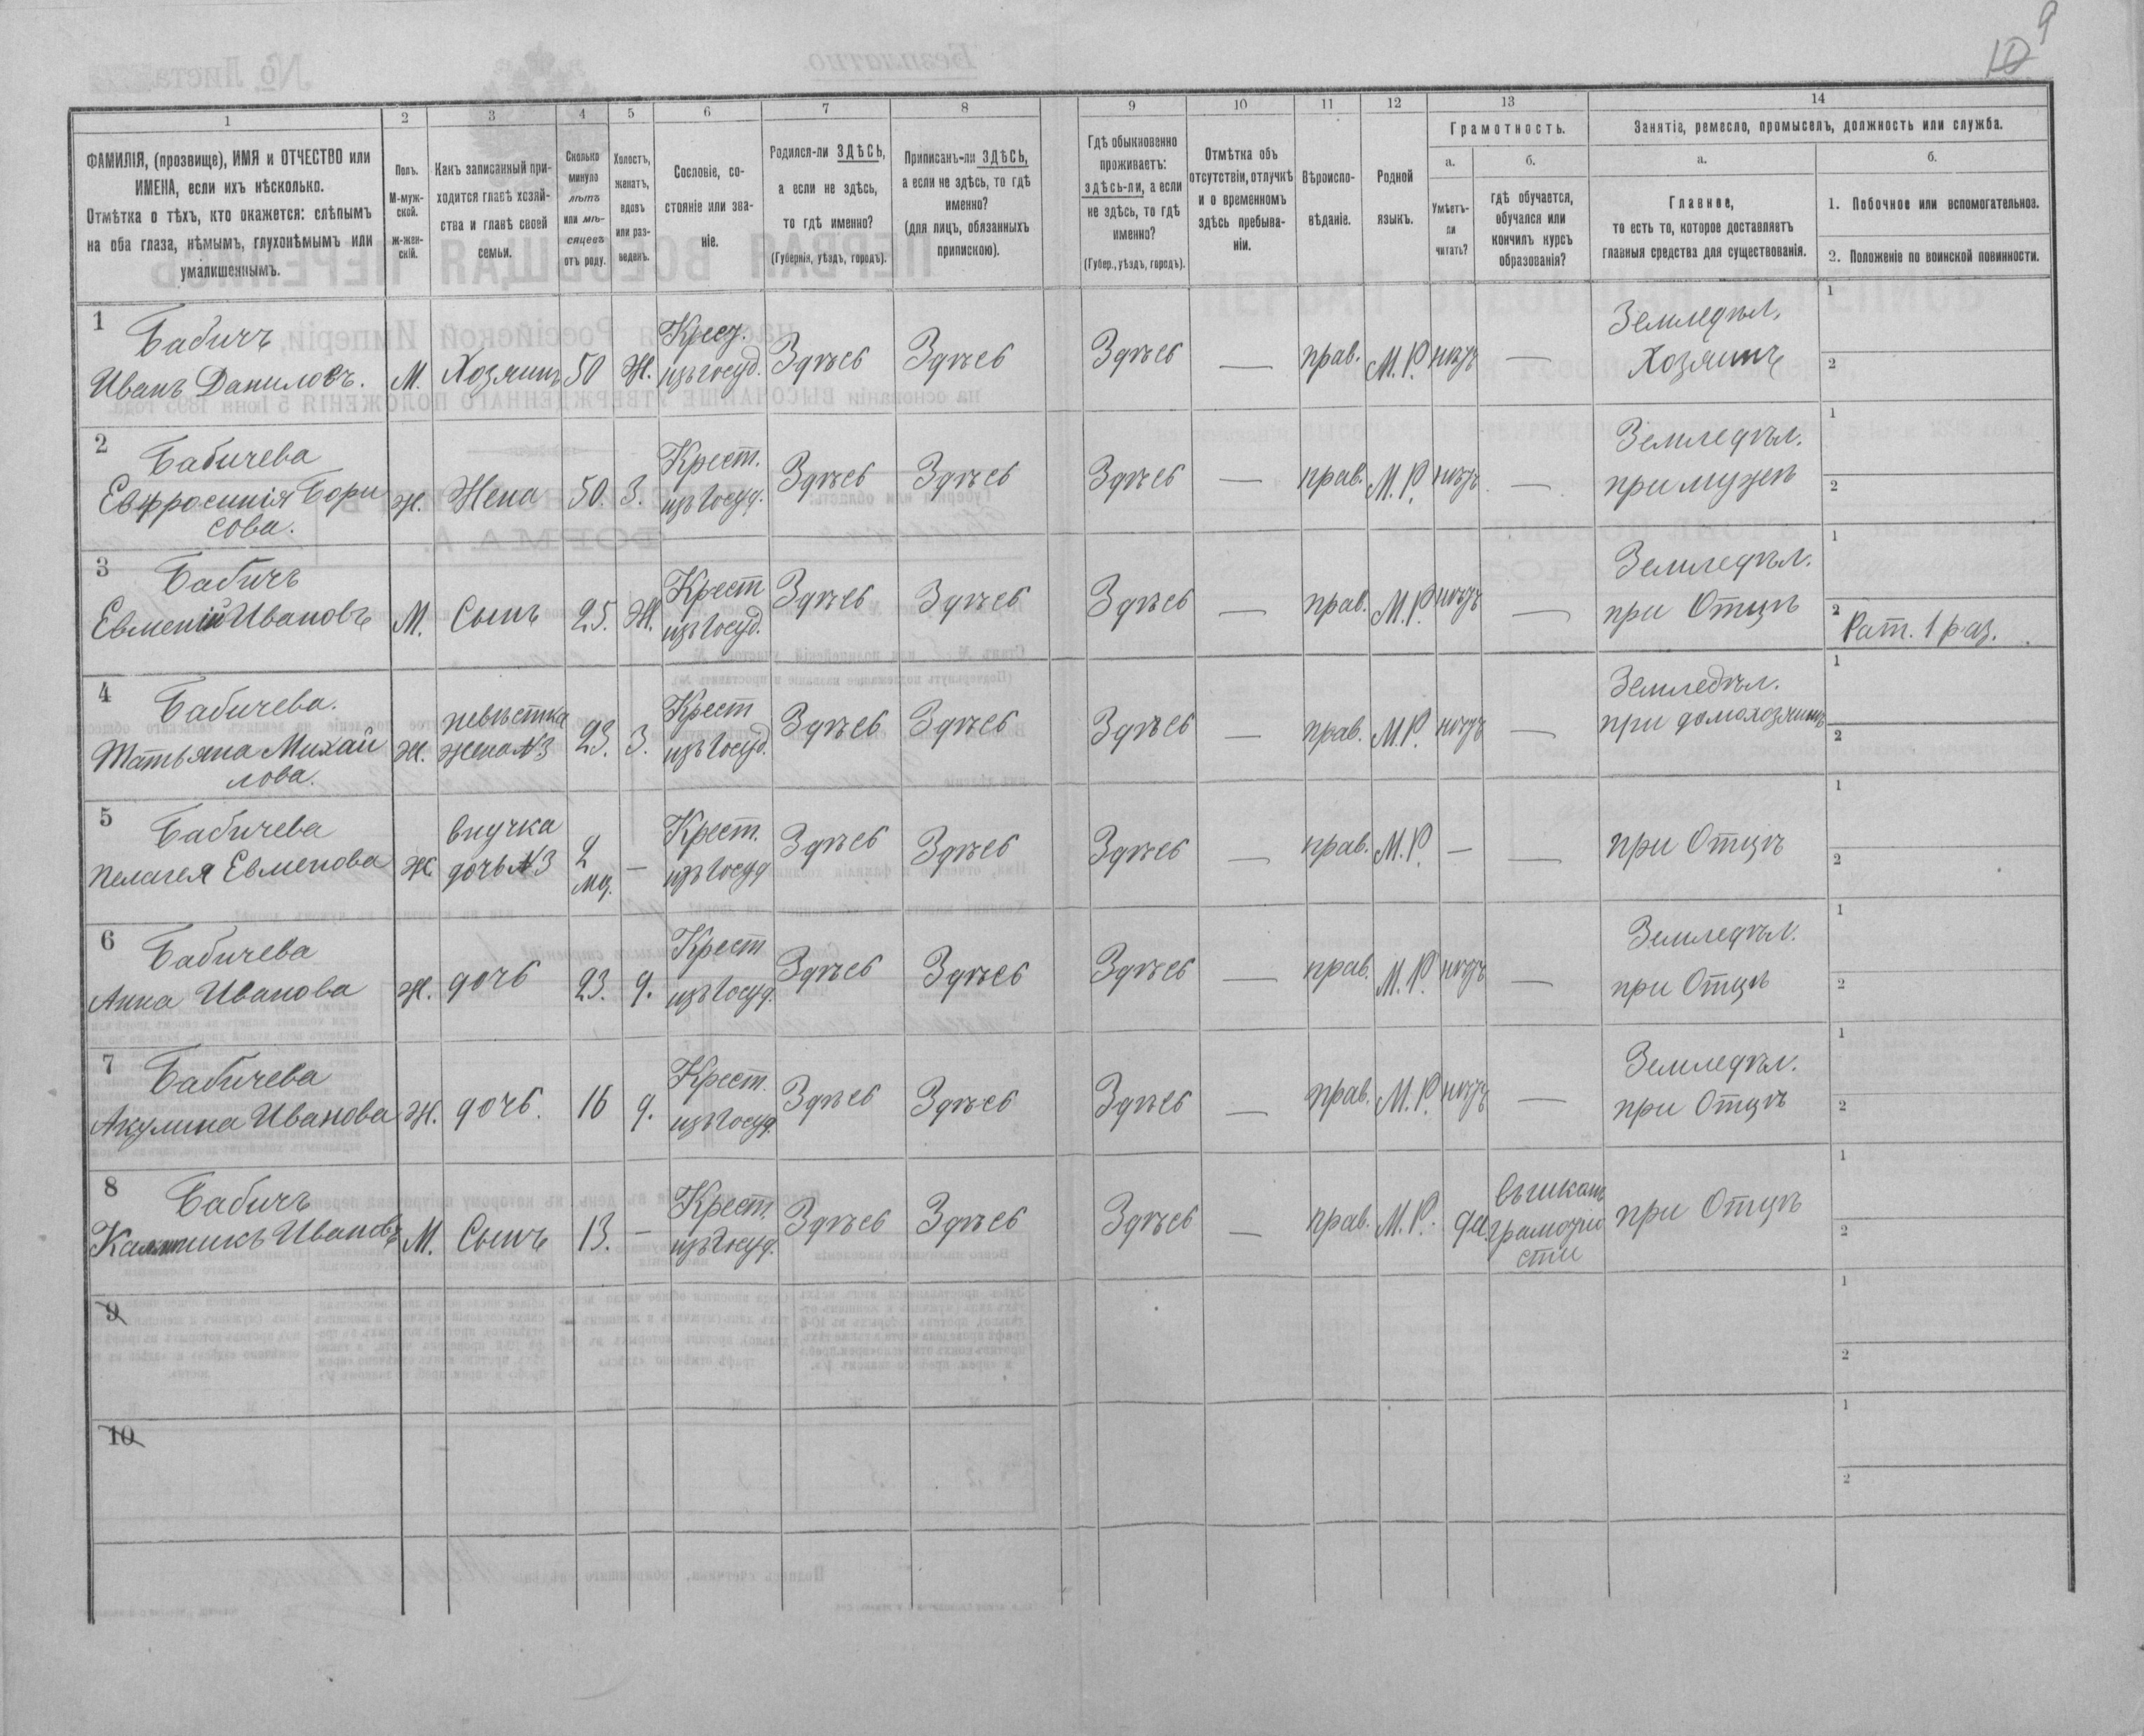 9
10
1 2 3 4 5 6 7 8 9 10 11 12 13 14
ФАМИЛІЯ, (прозвище), ИМЯ и ОТЧЕСТВО или
ИМЕНА, если ихъ нѣсколько.
Отмѣтка о тѣхъ, кто окажется: слѣпымъ
на оба глаза, нѣмымъ, глухонѣмымъ или
умалишеннымъ.
Полъ.
М-муж-
ской.
ж-жен-
скій.
Какъ записанный при-
ходится главѣ хозяй-
ства и главѣ своей
семьи.
Сколько
минуло
лѣтъ
или мѣ-
сяцевъ
отъ роду.
Холостъ,
женатъ,
вдовъ
или раз-
веденъ.
Сословіе, со-
стояніе или зва-
ніе.
Родился-ли ЗДѢСЬ,
а если не здѣсь,
то гдѣ именно?
(Губернія, уѣздъ, городъ).
Приписанъ-ли ЗДѢСЬ,
а если не здѣсь, то гдѣ
именно?
(для лицъ, обязанныхъ
припискою).
Гдѣ обыкновенно
проживаетъ:
здѣсь-ли, а если
не здѣсь, то гдѣ
именно?
(Губер., уѣздъ, городъ).
Отмѣтка объ
отсутствіи, отлучкѣ
и о временномъ
здѣсь пребыва-
ніи.
Вѣроиспо-
вѣданіе.
Родной
языкъ.
Грамотность.
а.
Умѣетъ-
ли
читать?
б.
гдѣ обучается,
обучался или
кончилъ курсъ
образованія?
Занятіа, ремесло, промыселъ, должность или служба.
а.
Главное,
то есть то, которое доставляетъ
главныя средства для существованія.
б.
1. Побочное или вспомогательное.
2. Положеніе по воинской повинности.
1 Бабичъ
Иванъ Даниловъ. М. Хозяинъ 50 Ж. Крест. изъ госуд. Здѣсь Здѣсь Здѣсь — прав. М.Р. нѣтъ — Земледѣл. Хозяинъ 1 2
2 Бабичева
Евфросинія Бори
сова. Ж. Жена 50. З. Крест. изъ госуд. Здѣсь Здѣсь Здѣсь — прав. М.Р. нѣтъ — Земледѣл. при мужѣ 1 2
3 Бабичъ
Евменій Ивановъ М. Сынъ 25. Ж. Крест изъ госуд. Здѣсь Здѣсь Здѣсь — прав. М.Р. нѣтъ — Земледѣл. при Отцѣ 1 2 Рат. 1 раз.
4 Бабичева.
Татьяна Михай
лова. Ж. невѣстка жена №3 23. З. Крест изъ госуд. Здѣсь Здѣсь Здѣсь — прав. М.Р. нѣтъ — Земледѣл. при домохозяинѣ 1 2
5 Бабичева
Пелагея Евменова Ж внучка дочь №3 2 мц. — Крест. изъ госуд Здѣсь Здѣсь Здѣсь — прав. М.Р. — — при Отцѣ 1 2
6 Бабичева
Анна Иванова Ж. дочь 23. д. Крест изъ госуд. Здѣсь Здѣсь Здѣсь — прав. М.Р. нѣтъ — Земледѣл. при Отцѣ 1 2
7 Бабичева
Акулина Иванова Ж. дочь. 16 д. Крест. изъ госуд. Здѣсь Здѣсь Здѣсь — прав. М.Р. нѣтъ — Земледѣл. при Отцѣ 1 2
8 Бабичъ
Ивановъ М. Сынъ 13. — Крест. изъ госуд. Здѣсь Здѣсь Здѣсь — прав. М.Р. да грамотно сти при Отцѣ 1 2
9 1 2
10 1 2